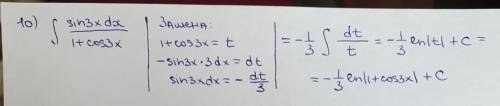 10) ∫ sin3x dx / 1+cos3x
Замена:
1+cos3x = t
-sin3x·3dx = dt
sin3xdx = - dt/3
= -1/3 ∫ dt/t = -1/3 ln|t| + C =
= -1/3 ln|1+cos3x| + C